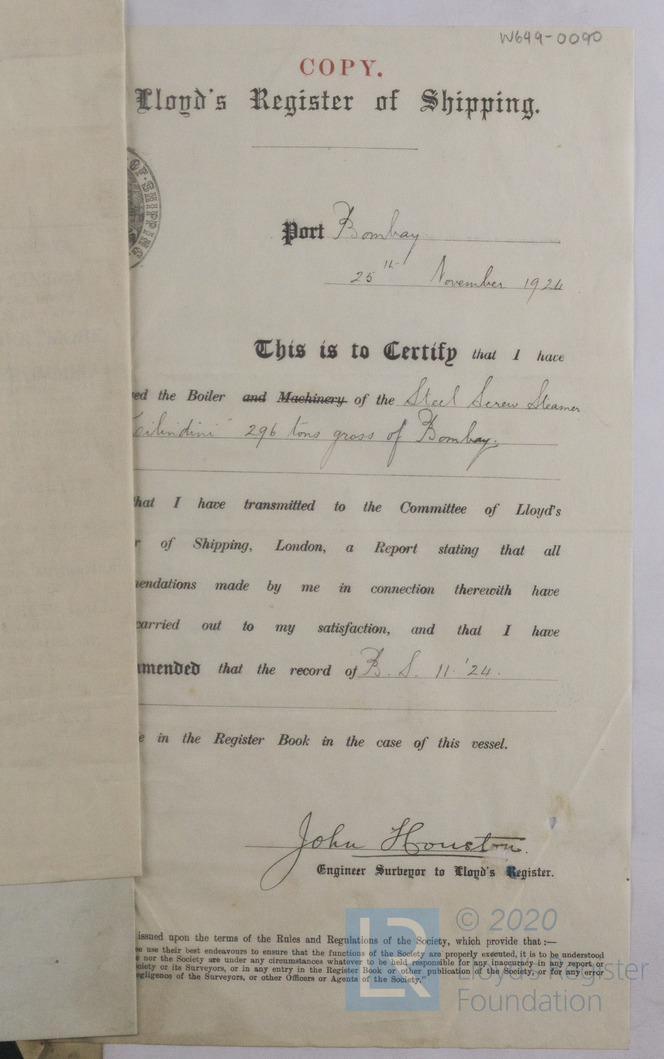 W699-0090
COPY.
Lloyd's Register of Shipping.
OF SHIPPING
Port Bombay
25th November 1924
This is to Certify that I have
ed the Boiler and Machinery of the Steel Screw Steamer
ilindini" 296 tons gross of Bombay.
that I have transmitted to the Committee of Lloyd's
r of Shipping, London, a Report stating that all
mendations made by me in connection therewith have
carried out to my satisfaction, and that I have
mmended that the record of B. S. 11. '24.
e in the Register Book in the case of this vessel.
John Houston.
Engineer Surveyor to Lloyd's Register.
issued upon the terms of the Rules and Regulations of the Society, which provide that :—
use their best endeavours to ensure that the functions of the Society are properly executed, it is to be understood
e nor the Society are under any circumstances whatever to be held responsible for any inaccuracy in any report or
ciety or its Surveyors, or in any entry in the Register Book or other publication of the Society, or for any error
egligence of the Surveyors, or other Officers or Agents of the Society."
LR
© 2020
Lloyd's Register
Foundation